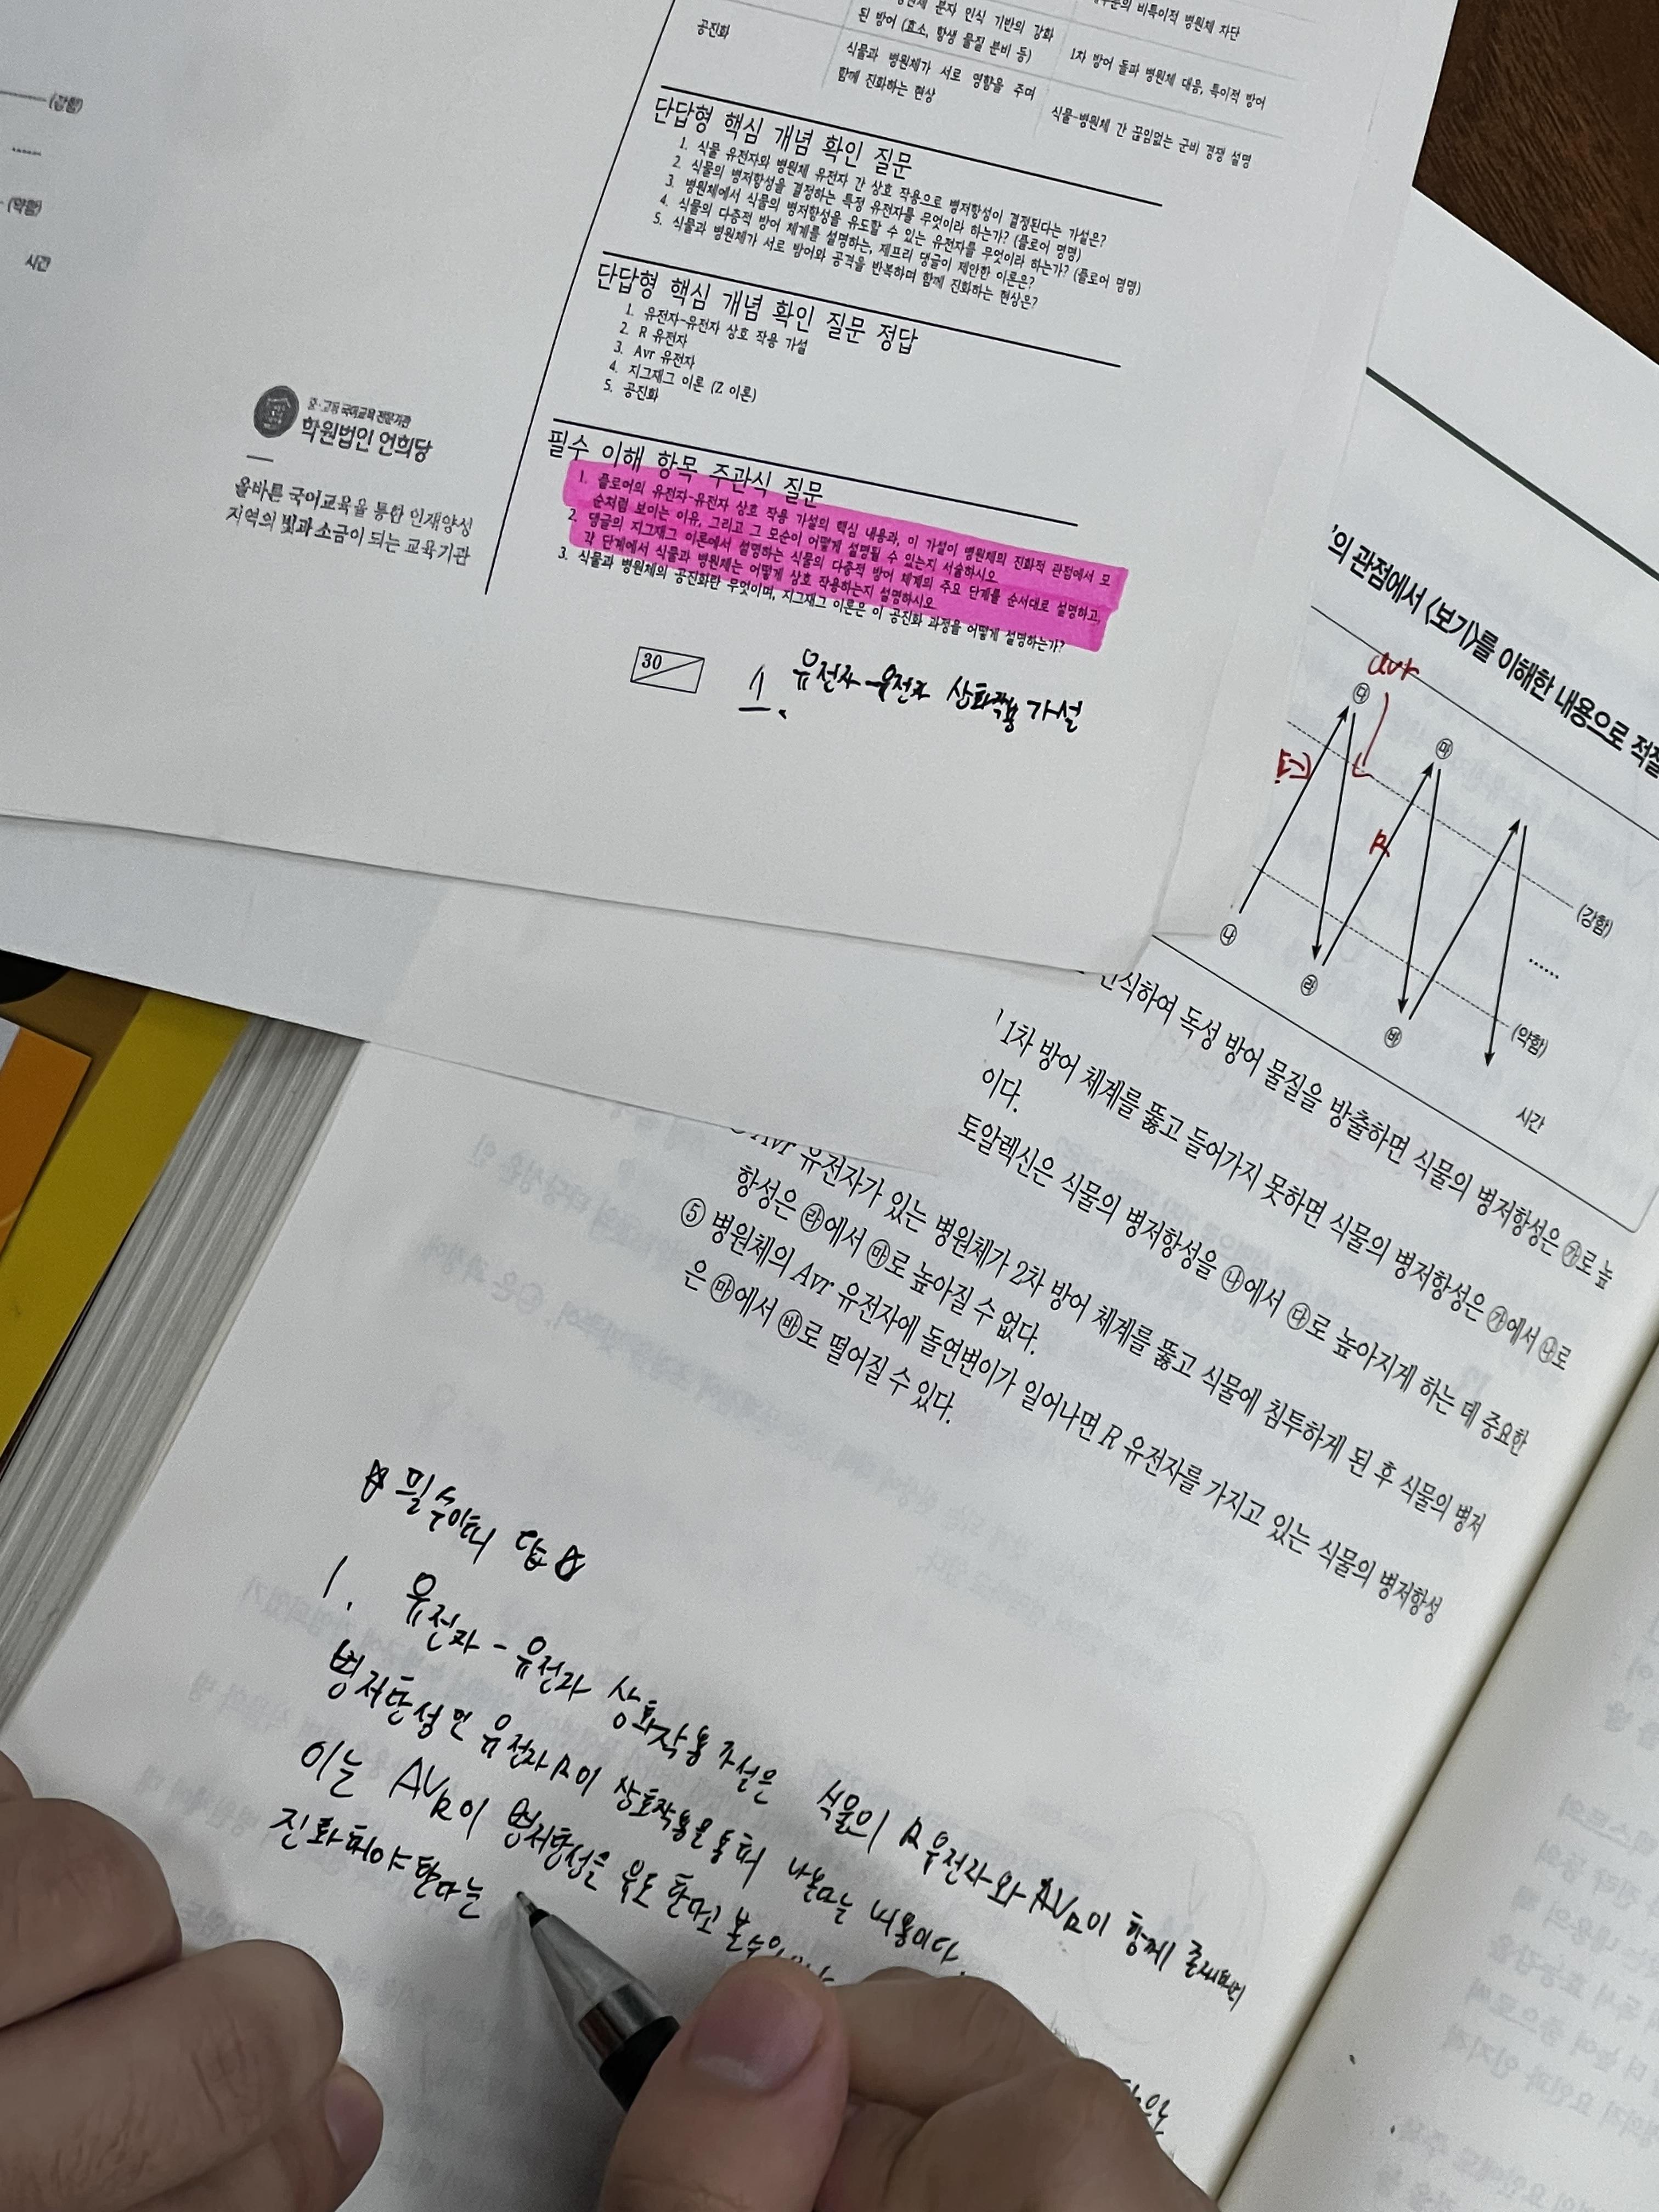 (강함)
......
(약함)
시간
중·고등 국어교육 전문기관
학원법인 언희당
올바른 국어교육을 통한 인재양성
지역의 빛과 소금이 되는 교육기관
분자 인식 기반의 강화
된 방어 (효소, 항생 물질 분비 등)
비특이적 병원체 차단
1차 방어 돌파 병원체 대응, 특이적 방어
공진화
식물과 병원체가 서로 영향을 주며
함께 진화하는 현상
식물-병원체 간 끊임없는 군비 경쟁 설명
단답형 핵심 개념 확인 질문
1. 식물 유전자와 병원체 유전자 간 상호 작용으로 병저항성이 결정된다는 가설은?
2. 식물의 병저항성을 결정하는 특정 유전자를 무엇이라 하는가? (플로어 명명)
3. 병원체에서 식물의 병저항성을 유도할 수 있는 유전자를 무엇이라 하는가? (플로어 명명)
4. 식물의 다층적 방어 체계를 설명하는, 제프리 댕글이 제안한 이론은?
5. 식물과 병원체가 서로 방어와 공격을 반복하며 함께 진화하는 현상은?
단답형 핵심 개념 확인 질문 정답
1. 유전자-유전자 상호 작용 가설
2. R 유전자
3. Avr 유전자
4. 지그재그 이론 (Z 이론)
5. 공진화
필수 이해 항목 주관식 질문
1. 플로어의 유전자-유전자 상호 작용 가설의 핵심 내용과, 이 가설이 병원체의 진화적 관점에서 모
순처럼 보이는 이유, 그리고 그 모순이 어떻게 설명될 수 있는지 서술하시오
2. 댕글의 지그재그 이론에서 설명하는 식물의 다층적 방어 체계의 주요 단계를 순서대로 설명하고,
각 단계에서 식물과 병원체는 어떻게 상호 작용하는지 설명하시오
3. 식물과 병원체의 공진화란 무엇이며, 지그재그 이론은 이 공진화 과정을 어떻게 설명하는가?
30
1. 유전자-유전자 상호작용 가설
'의 관점에서 <보기>를 이해한 내용으로 적절
avr
㉰
㉲
R
(강함)
......
㉯
㉱
㉳
(약함)
시간
인식하여 독성 방어 물질을 방출하면 식물의 병저항성은 ㉮로 높
1차 방어 체계를 뚫고 들어가지 못하면 식물의 병저항성은 ㉮에서 ㉯로
이다.
토알렉신은 식물의 병저항성을 ㉯에서 ㉰로 높아지게 하는 데 중요한
Avr 유전자가 있는 병원체가 2차 방어 체계를 뚫고 식물에 침투하게 된 후 식물의 병저
항성은 ㉱에서 ㉲로 높아질 수 없다.
⑤ 병원체의 Avr 유전자에 돌연변이가 일어나면 R 유전자를 가지고 있는 식물의 병저항성
은 ㉲에서 ㉳로 떨어질 수 있다.
☆ 필수이해 답 ☆
1. 유전자-유전자 상호작용 가설은 식물의 R유전자와 AVR이 함께 존재하며
병저항성 면 유전자 R이 상호작용을 통해 나온다는 내용이다.
이는 AVR이 병저항성을 유도 한다고 볼수
진화해야한다는